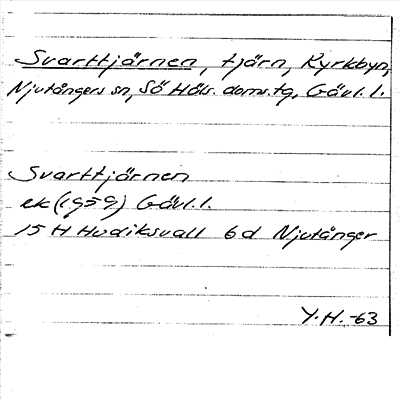 Svarttjärnen, tjärn, Kyrkbyn,
Njutångers sn, Sö Häls. doms.tg, Gävl.l.
Svarttjärnen
ek (1959) Gävl.l.
15 H Hudiksvall 6d Njutånger
Y.H.-63